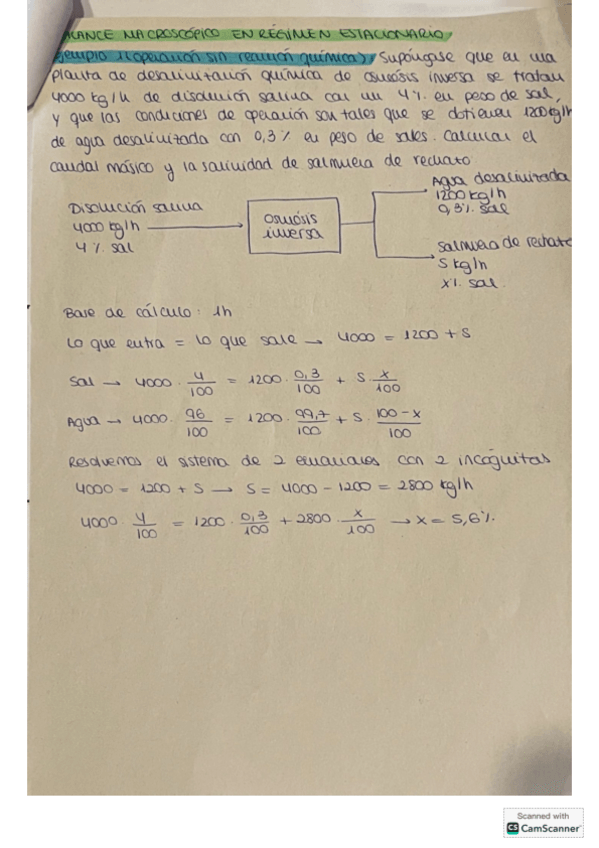 BALANCE MACROSCÓPICO EN RÉGIMEN ESTACIONARIO
Ejemplo 1 (operación sin reacción química) Supóngase que en una
planta de desalinización química de osmósis inversa se tratan
4000 kg/h de disolución salina con un 4% en peso de sal,
y que las condiciones de operación son tales que se obtienen 1200 kg/h
de agua desalinizada con 0,3% en peso de sales. Calcular el
caudal másico y la salinidad de salmuera de rechazo.
Agua desalinizada
1200 kg/h
0,3% sal
Disolución salina
4000 kg/h
4% sal
osmósis
inversa
Salmuera de rechazo
S kg/h
x% sal.
Base de cálculo: 1h
Lo que entra = lo que sale → 4000 = 1200 + S
Sal → 4000 · 4/100 = 1200 · 0,3/100 + S · x/100
Agua → 4000 · 96/100 = 1200 · 99,7/100 + S · 100-x/100
Resolvemos el sistema de 2 ecuaciones con 2 incógnitas
4000 = 1200 + S → S = 4000 - 1200 = 2800 kg/h
4000 · 4/100 = 1200 · 0,3/100 + 2800 · x/100 → x = 5,6%.
Scanned with
CS CamScanner